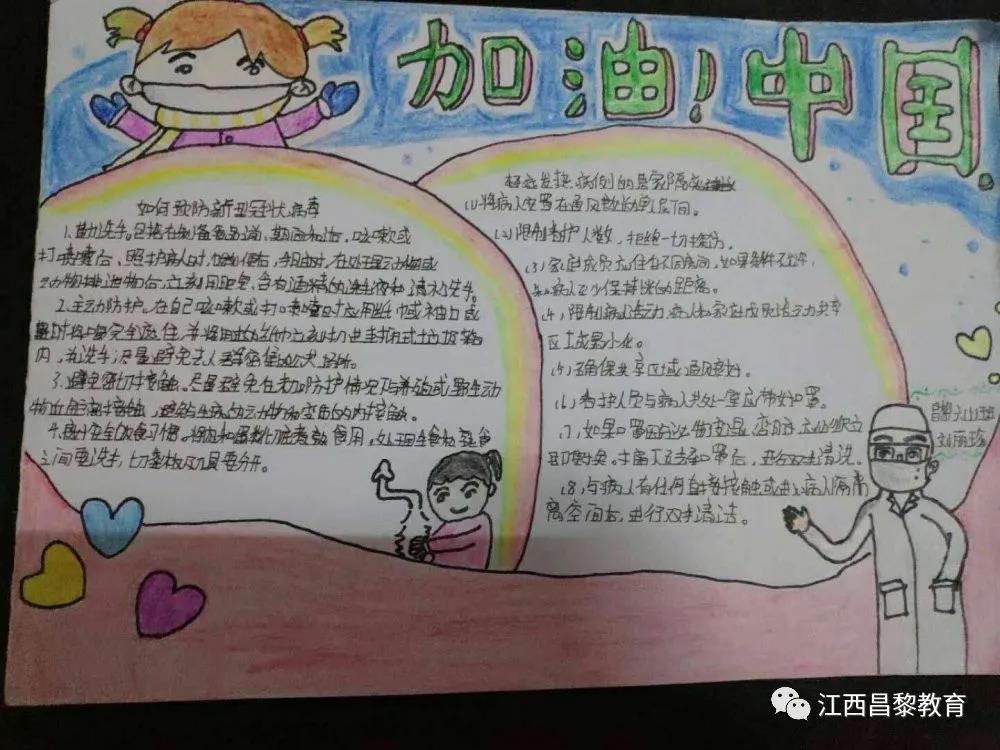 加油!中国
如何预防新型冠状病毒
1.勤洗手。包括在制备食品前、期间和后,咳嗽或
打喷嚏后、照护病人时,如厕便后,手脏时,在处理动物或
动物排泄物后,立刻用肥皂、含有酒精的洗手液和清水洗手。
2.主动防护。在自己咳嗽或打喷嚏时应用纸巾或袖口或
肘将口鼻完全遮住,并将用过的纸巾立刻扔进封闭式垃圾箱
内,并洗手;尽量避免去人群密集的公共场所。
3.避免密切接触。尽量避免在未加防护情况下与养殖或野生动
物近距离接触,避免与生病的动物和变质的肉接触。
4.
食用,处理生食和熟食
之间要洗手,切菜板及刀具要分开。
轻症发热病例的居家隔离
(1)将病人安置在通风良好的单人房间。
(2)限制看护人数,拒绝一切探访。
(3)家庭成员应住在不同房间,如果条件不允许,
和病人至少保持1米的距离。
(4)限制病人活动,病人和家庭成员活动共享
区域最小化。
(5)确保共享区域通风良好。
(6)看护人员与病人共处一室应带好口罩。
(7)如果口罩因分泌物变湿、变脏,必须立
即更换。摘下及丢弃口罩后,进行双手清洗。
(8)与病人有任何直接接触或进入病人隔离
离空间后,进行双手清洁。
江西昌黎教育